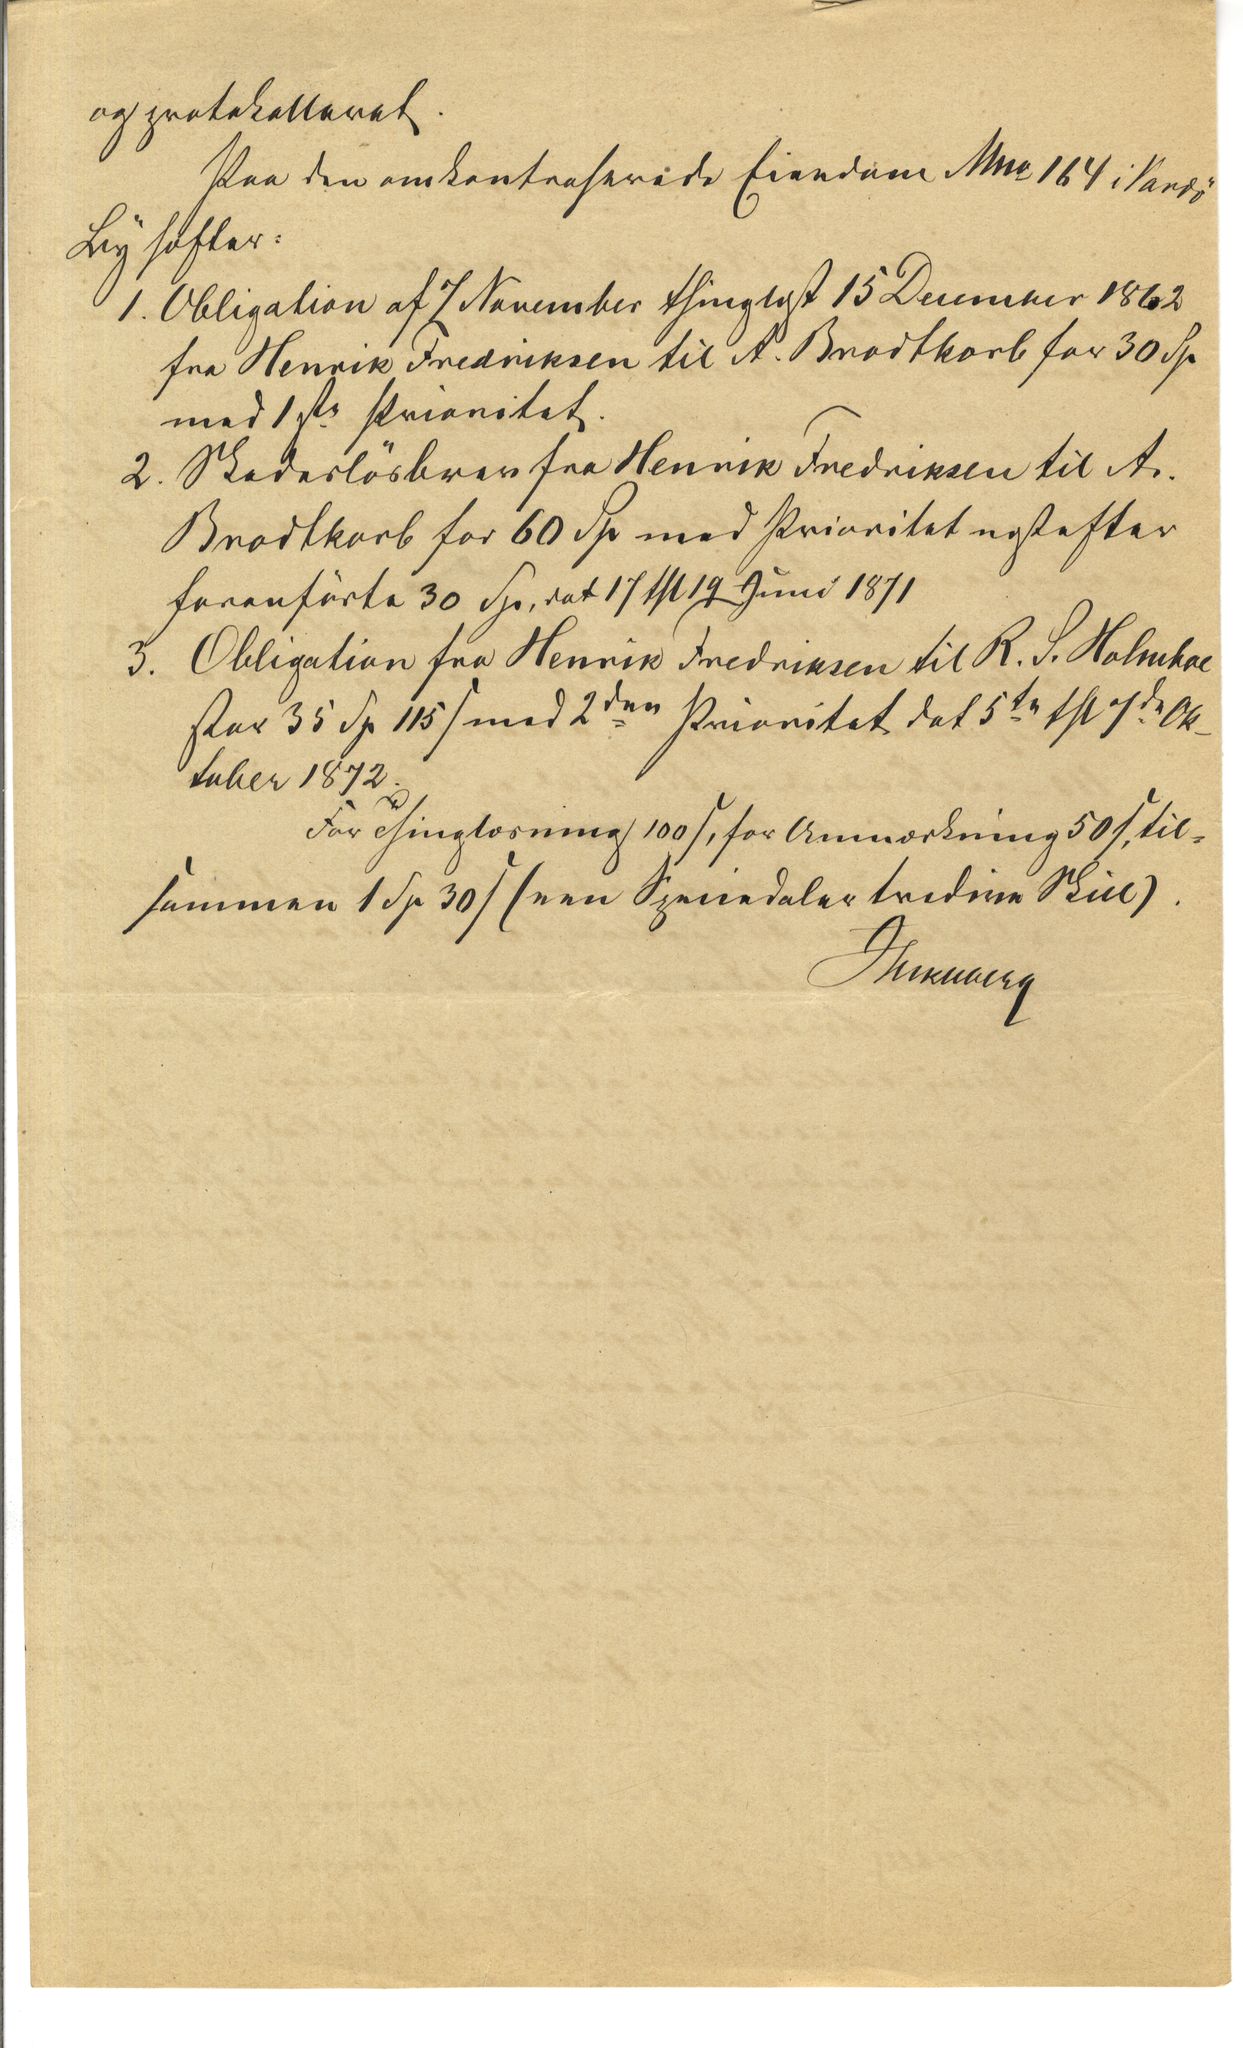 og protokolleret.
Paa den omkontraherede Eiendom Mno 164 i Vardö
By hefter:
1. Obligation af 7 November thinglyst 15 December 1862
fra Henrik Fredriksen til A. Brodtkorb for 30 Sp
med 1ste Prioritet.
2. Skadeslösbrev fra Henrik Fredriksen til A.
Brodtkorb for 60 Sp med Prioritet næstefter
foranförte 30 Sp, dat 17 thl 19 Juni 1871
3. Obligation fra Henrik Fredriksen til R. S. Holmboe
stor 35 Sp 115 s med 2den Prioritet dat 5te thl 7de Ok-
tober 1872.
For Thinglæsning 100 s, for Anmærkning 50 s, til-
sammen 1 Sp 30 s (een Speciedaler tredive Skill).